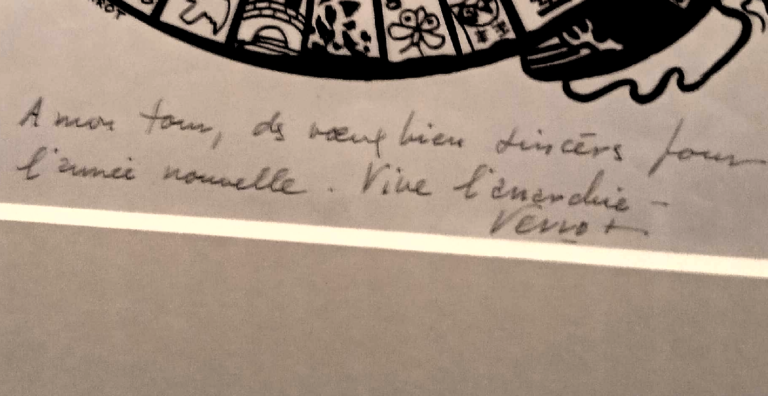 A mon tour, des vœux bien sincères pour
l'année nouvelle. Vive l'anarchie -